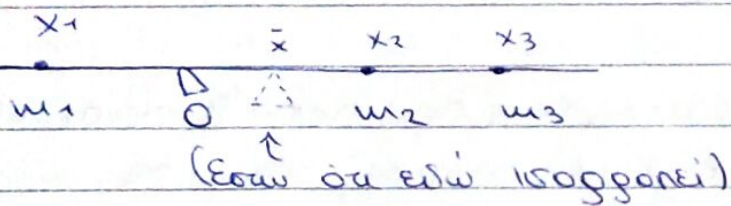 x1 x̄ x2 x3
m1 O m2 m3
(Έστω ότι εδώ ισορροπεί)